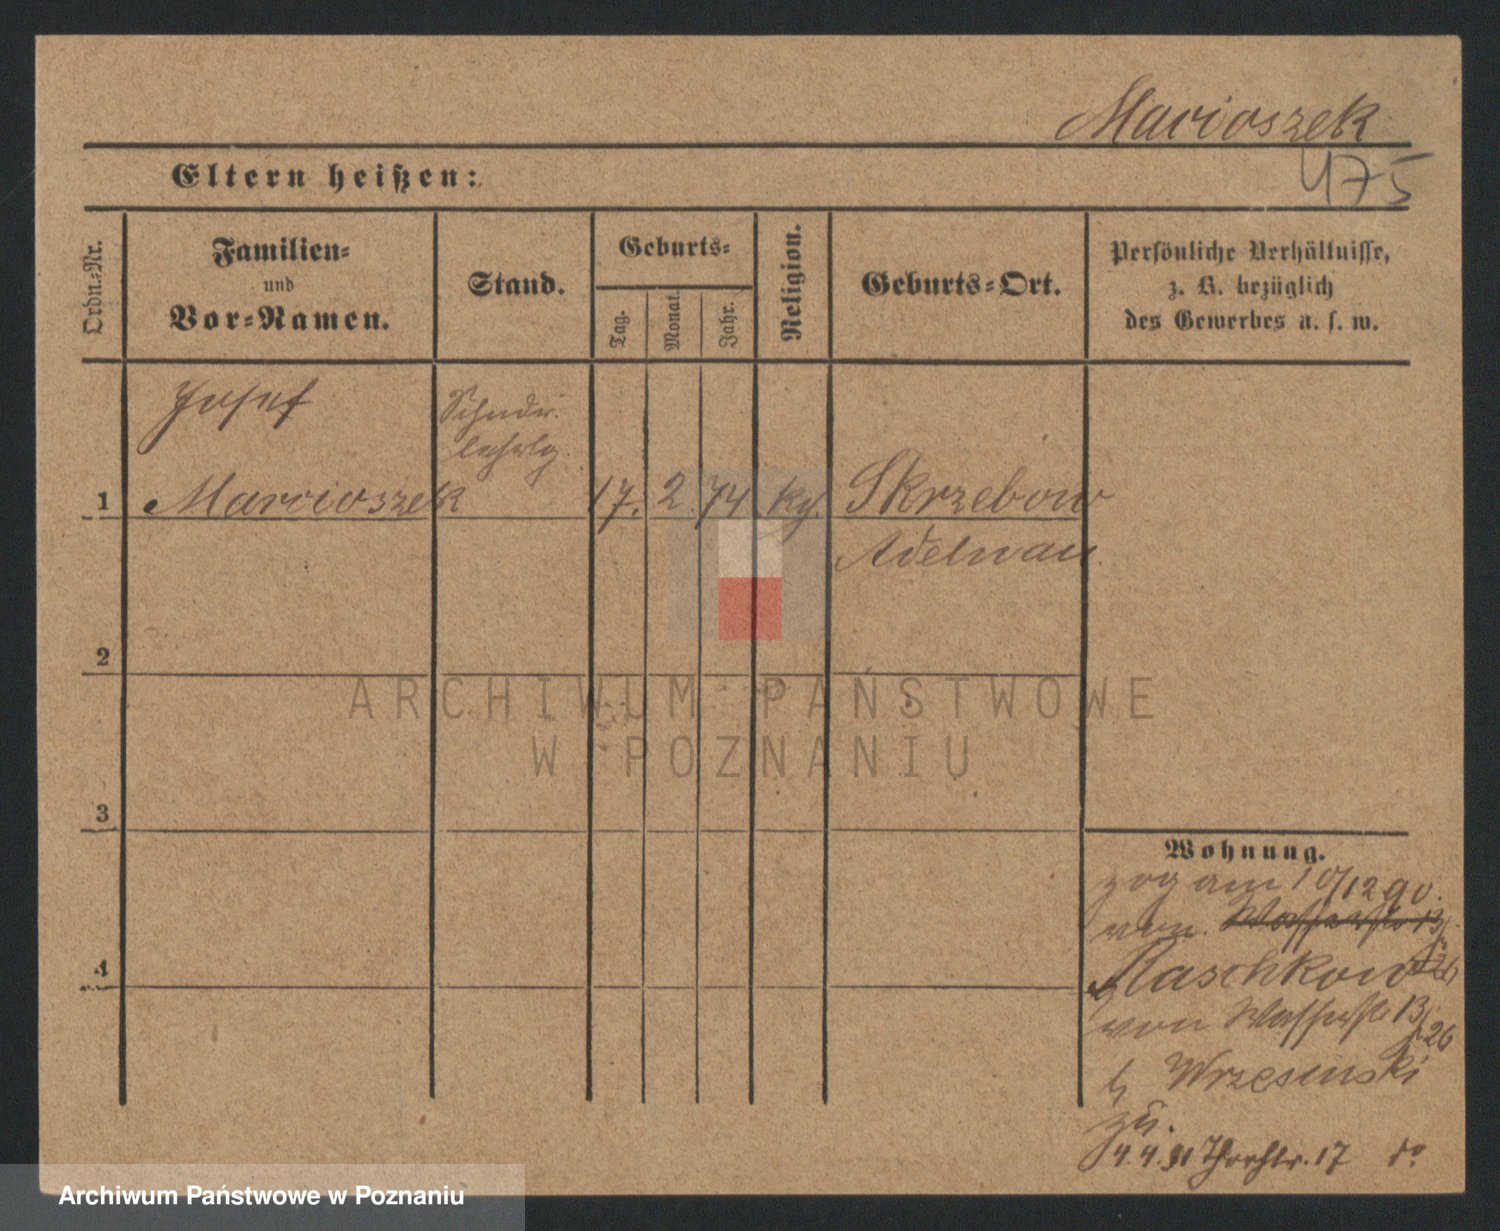 Marcioszek
475
Eltern heißen:
Ordn.-Nr.
Familien-
und
Vor-Namen.
Stand.
Geburts-
Tag.
Monat.
Jahr.
Religion.
Geburts-Ort.
Persönliche Verhältnisse,
z. B. bezüglich
des Gewerbes u. s. w.
Josef
Schndr.
lehrlg.
1 Marcioszek 17. 2. 74 Skrzebow
Adelnau
2
ARCHIWUM PAŃSTWOWE
W POZNANIU
3
Wohnung.
zog am 10/12 90.
von Wasserstr 13
Raschkow
4
von Wasserstr 13/26
b Wrzesinski
zu.
4.4.91 Thorstr. 17 do
Archiwum Państwowe w Poznaniu